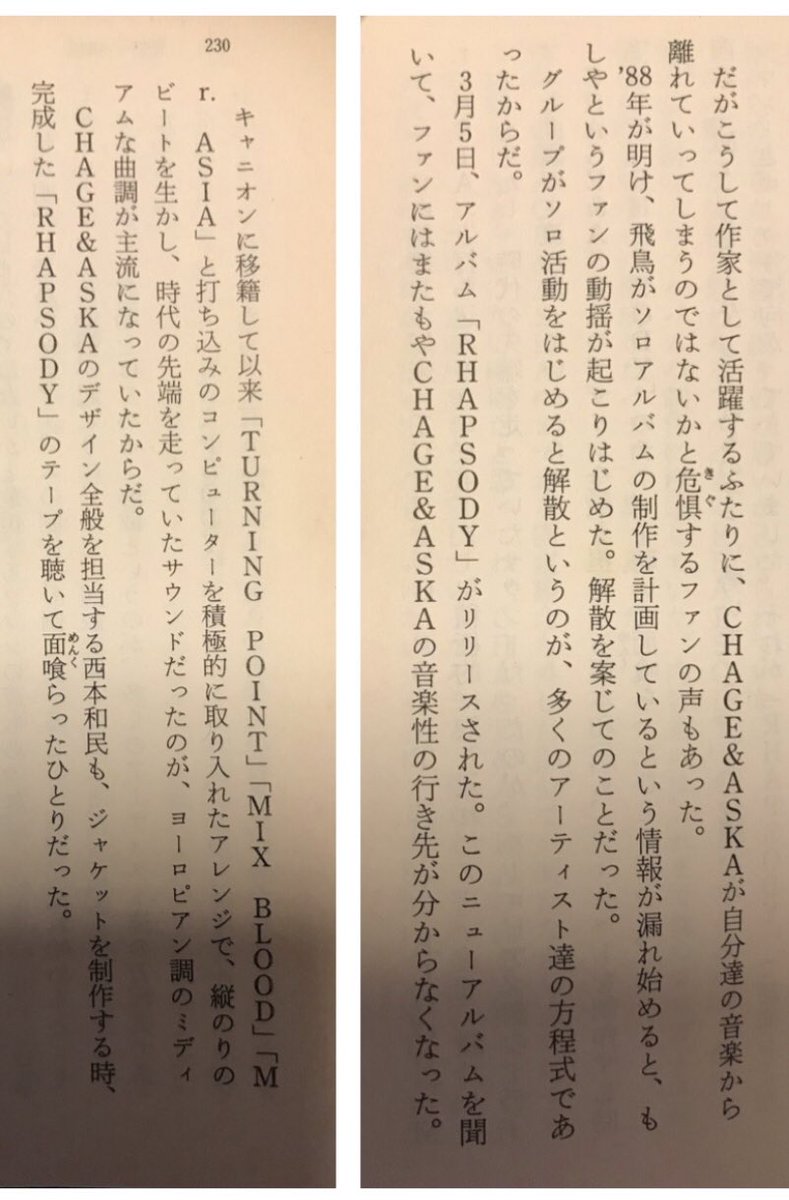 だがこうして作家として活躍するふたりに、CHAGE&ASKAが自分達の音楽から
離れていってしまうのではないかと危惧するファンの声もあった。
きぐ
'88年が明け、飛鳥がソロアルバムの制作を計画しているという情報が漏れ始めると、も
しやというファンの動揺が起こりはじめた。解散を案じてのことだった。
グループがソロ活動をはじめると解散というのが、多くのアーティスト達の方程式であ
ったからだ。
3月5日、アルバム「RHAPSODY」がリリースされた。このニューアルバムを聞
いて、ファンにはまたもやCHAGE&ASKAの音楽性の行き先が分からなくなった。
230
キャニオンに移籍して以来「TURNING POINT」「MIX BLOOD」「M
r. ASIA」と打ち込みのコンピューターを積極的に取り入れたアレンジで、縦のりの
ビートを生かし、時代の先端を走っていたサウンドだったのが、ヨーロピアン調のミディ
アムな曲調が主流になっていたからだ。
CHAGE&ASKAのデザイン全般を担当する西本和民も、ジャケットを制作する時、
完成した「RHAPSODY」のテープを聴いて面喰らったひとりだった。
めんく